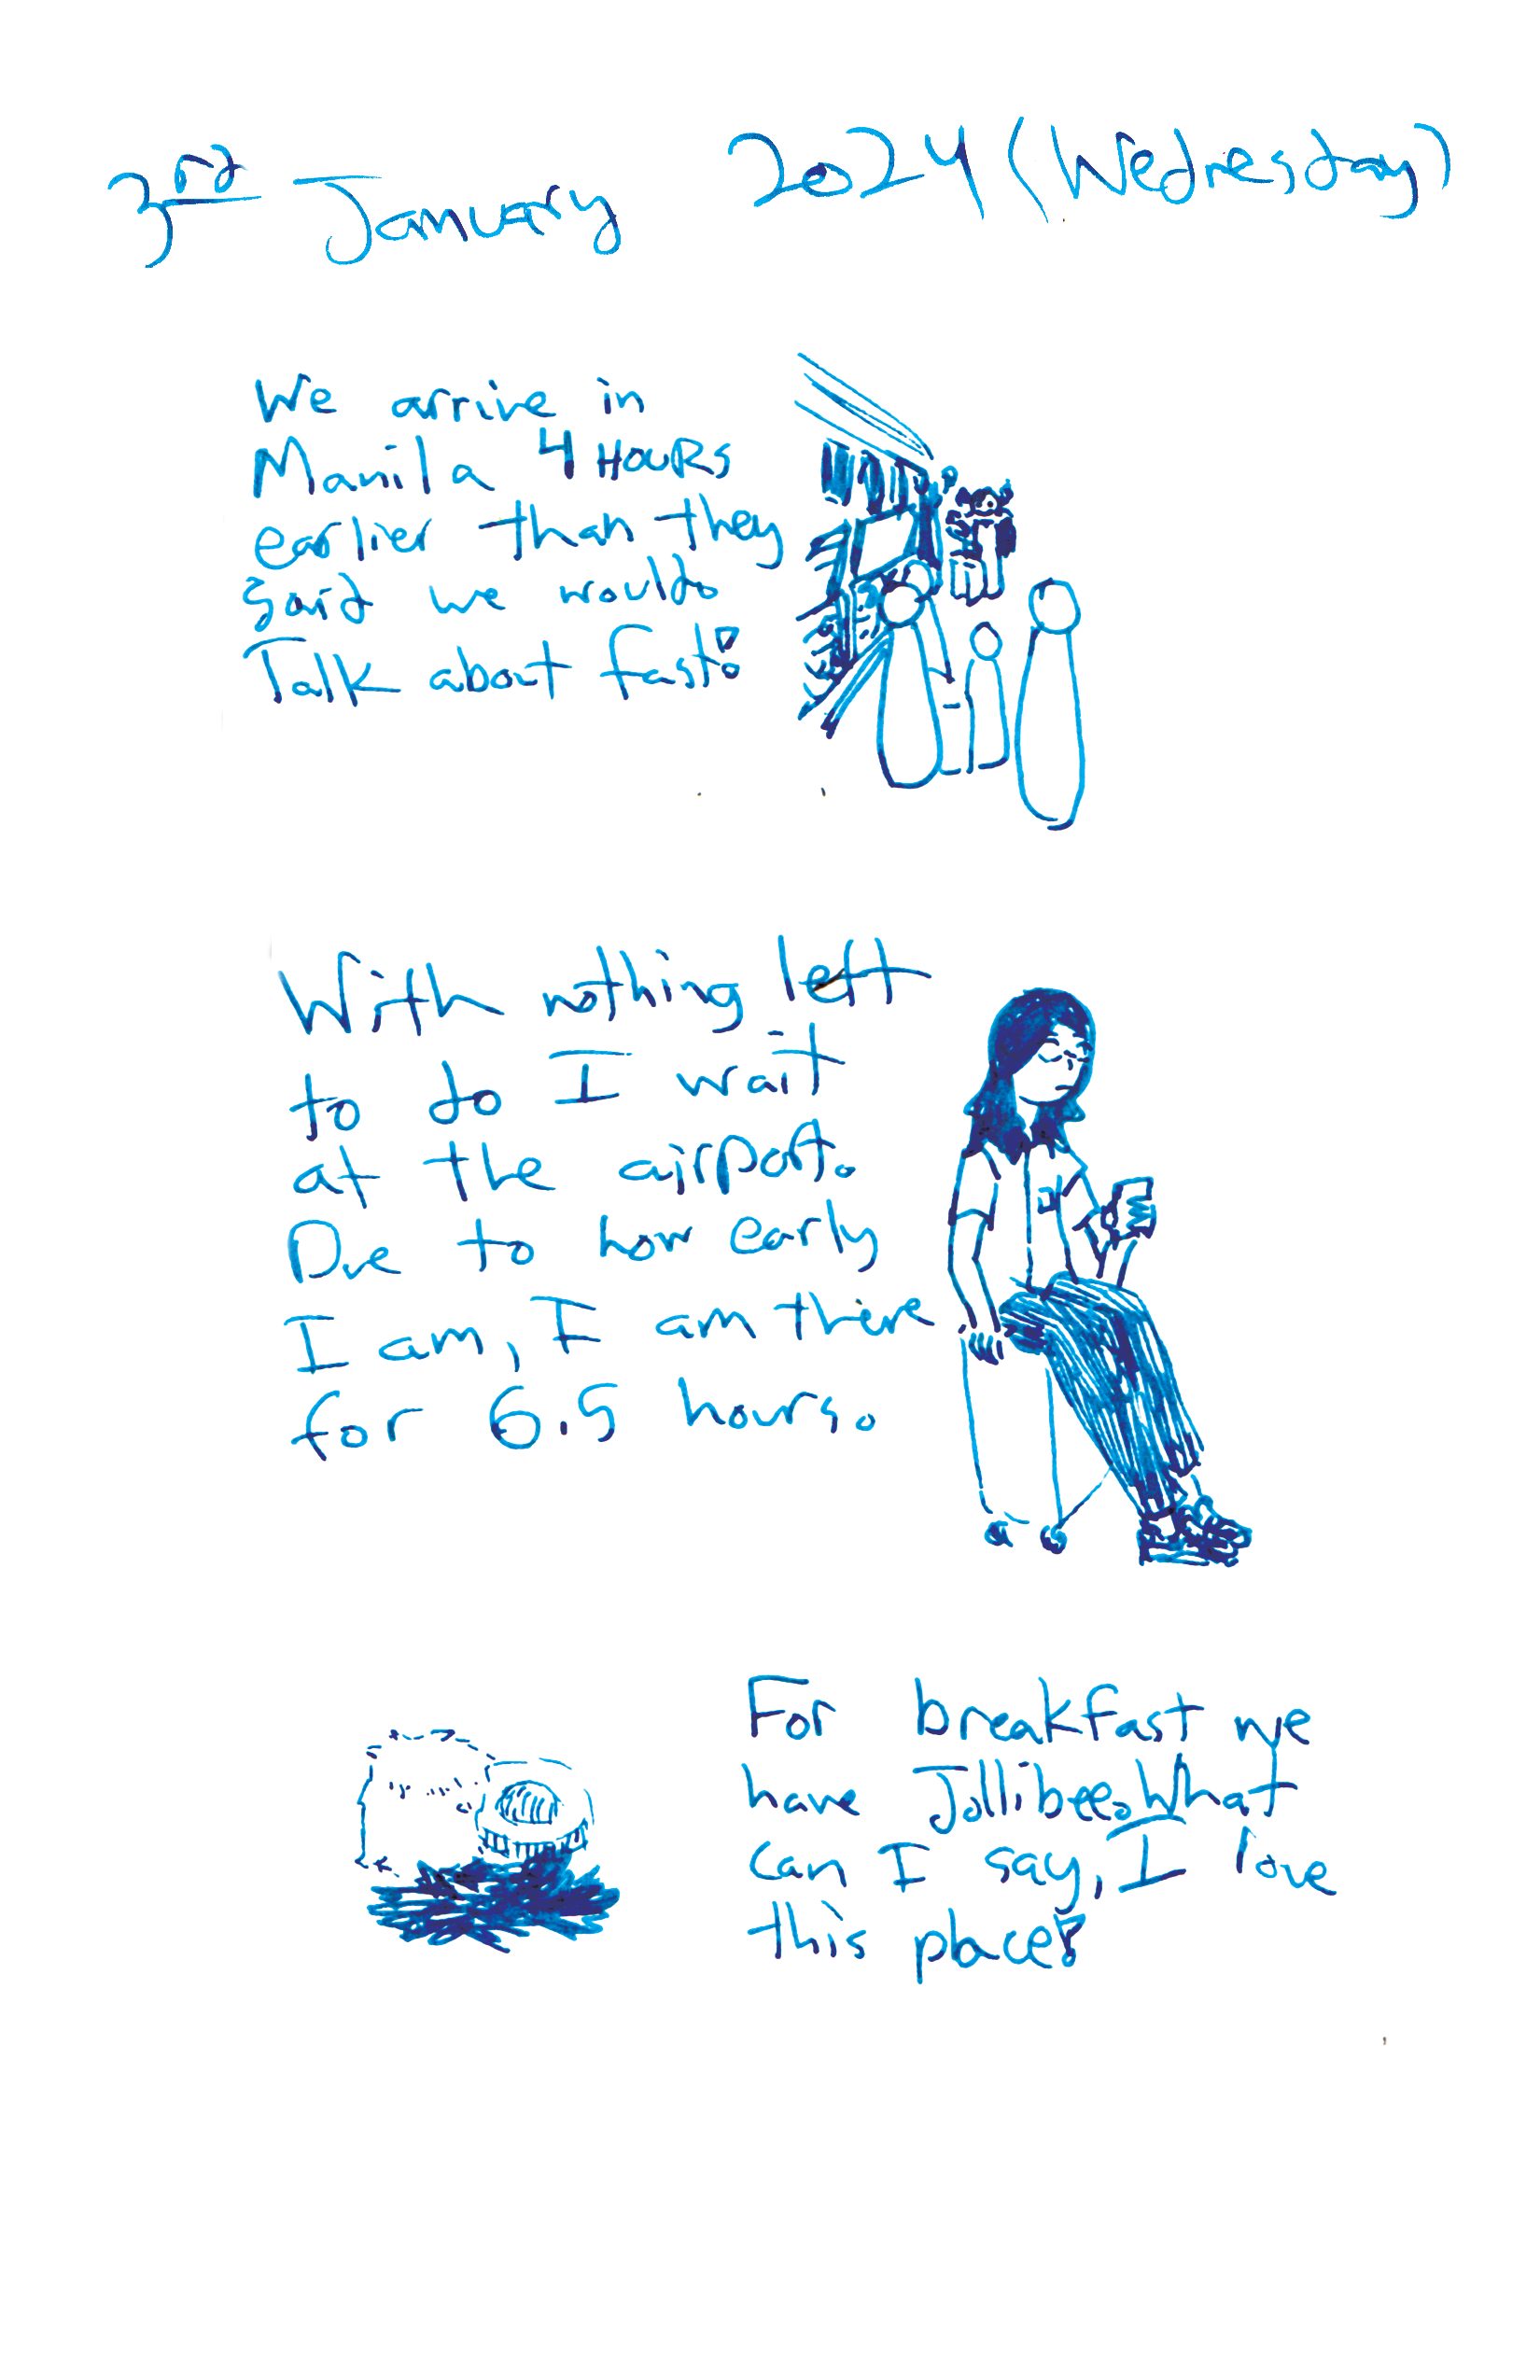 3rd January 2024 (Wednesday)
We arrive in
Manila 4 HOURS
earlier than they
said we would.
Talk about fast!
With nothing left
to do I wait
at the airport.
Due to how early
I am, I am there
for 6.5 hours.
For breakfast we
have Jollibee. What
can I say, I love
this place!